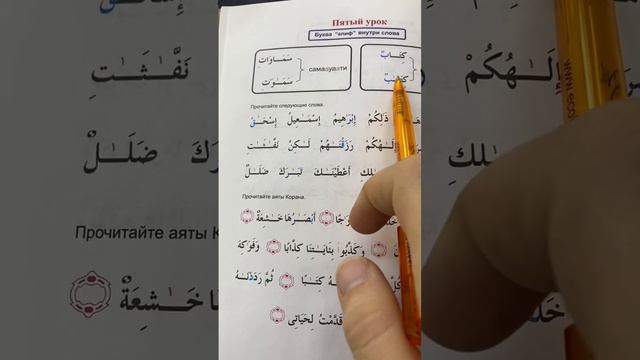 Пятый урок
Буква "алиф" внутри слова
سَمَاوَات كِتَابٌ
самаауаати
سَمَٰوَٰتِ كِتَٰبٌ
Прочитайте следующие слова.
ذَٰلِكُمْ إِبْرَٰهِيمُ إِسْمَٰعِيلُ إِسْحَٰقَ
إِلَٰهُكُمْ رَزَقْنَٰهُمْ لَٰكِنْ نَفَّٰثَٰتِ
أَعْطَيْنَٰكَ تَبَٰرَكَ ضَلَٰلٌ
Прочитайте аяты Корана.
أَبْصَٰرُهَا خَٰشِعَةٌ
وَكَذَّبُوا بِـَٔايَٰتِنَا كِذَّابًا وَفَوَٰكِهَ
كِتَٰبًا ثُمَّ رَدَدْنَٰهُ
قَدَّمْتُ لِحَيَاتِى